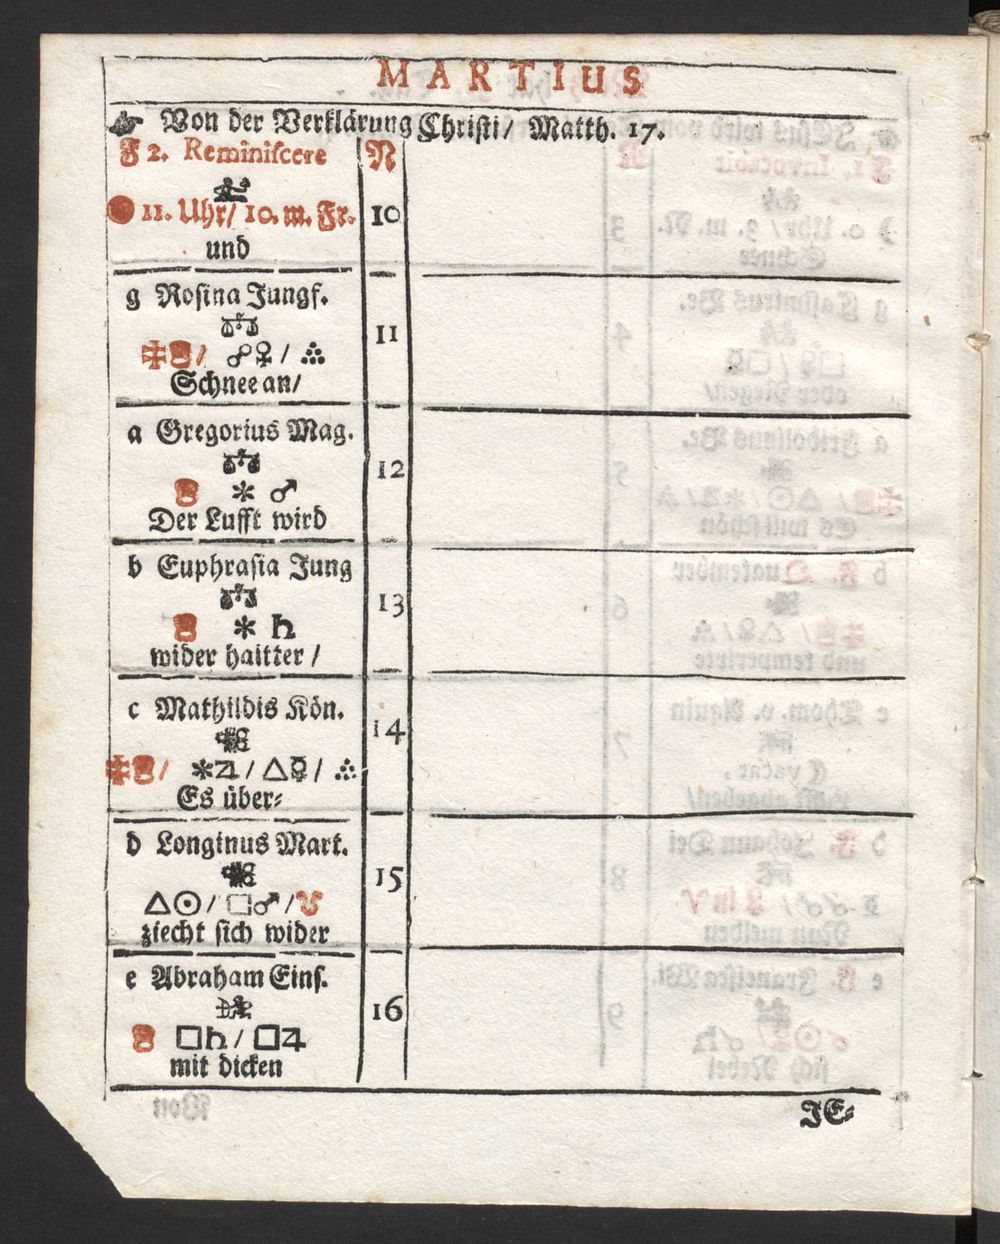 MARTIUS
☞ Von der Verklärung Christi/ Matth. 17.
F 2. Reminiscere N
11. Uhr/ 10. m. Fr. 10
und
g Rosina Jungf.
♎
/ ☍♀ / ∴ 11
Schnee an/
a Gregorius Mag.
♎
✶ ♂ 12
Der Lufft wird
b Euphrasia Jung
♎
✶ ♄ 13
wider haitter /
c Mathildis Kön.
/ ✶♃ / △☿ / ∴ 14
Es über⸗
d Longinus Mart.
△☉ / □♂ / 15
ziecht sich wider
e Abraham Eins.
□♄ / □♃ 16
mit dicken
JE⸗